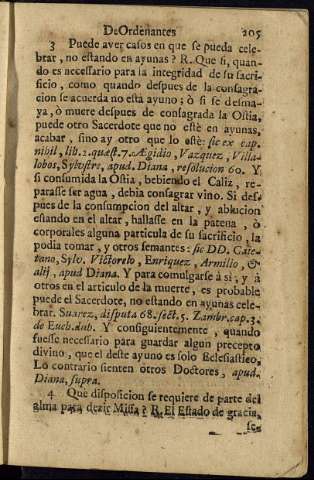 DeOrdenantes 205
3 Puede aver casos en que se pueda cele-
brar, no estando en ayunas? R. Que si, quan-
do es necessario para la integridad de su sacri-
ficio, como quando despues de la consagra-
cion se acuerda no està ayuno; ò si se desma-
ya, ò muere despues de consagrada la Ostia,
puede otro Sacerdote que no estè en ayunas,
acabar, sino ay otro que lo estè: sic ex cap.
nihil, lib. 2. quæst. 7. Ægidio, Vazquez, Villa-
lobos, Sylvestre, apud Diana, resolucion 60. Y
si consumida la Ostia, bebiendo el Caliz, re-
parasse ser agua, debia consagrar vino. Si des-
pues de la consumpcion del altar, y ablucion
estando en el altar, hallasse en la patena, ò
corporales alguna particula de su sacrificio, la
podia tomar, y otros semantes: sic DD. Caie-
tano, Sylv. Victorelo, Enriquez, Armilio, &
alij, apud Diana. Y para comulgarse à si, y à
otros en el articulo de la muerte, es probable
puede el Sacerdote, no estando en ayunas cele-
brar. Suarez, disputa 68. sect. 5. Zambr. cap. 3.
de Euch. dub. Y consiguientemente, quando
fuesse necessario para guardar algun precepto
divino, que el deste ayuno es solo Eclesiastico.
Lo contrario sienten otros Doctores, apud.
Diana, supra.
4 Què disposicion se requiere de parte del
alma para dezir Missa? R. El Estado de gracia,
se-